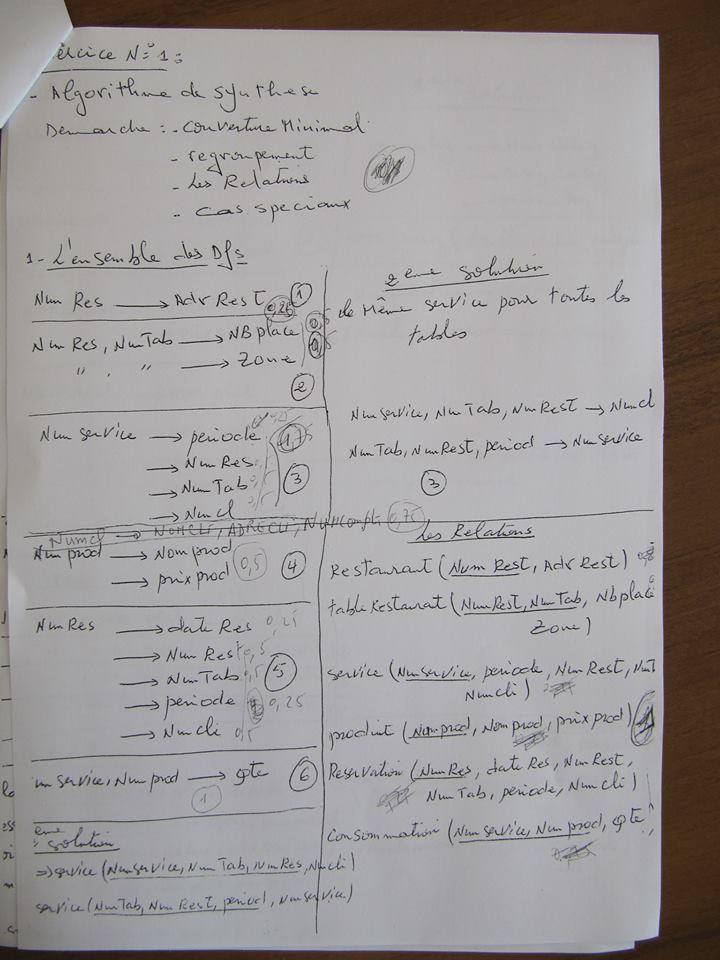 ercice N° 1 :
- Algorithme de synthese
Demarche : - couverture Minimal
- regroupement
- Les Relations
- cas speciaux
1 - L'ensemble des Dfs
Num Res → Adr Rest 0,25 1
Num Res, Num Tab → NBplace 0,5
" , " → Zone 0,5
2
Num service → periode 0,25
→ Num Res 0,5
→ Num Tab 0,5 3
→ Numcl 0,5
1,75
Numcl → NOMCLI, ADRECLI, NUMcompte 0,75
Num prod → Nomprod
→ prixprod 0,5 4
Num Res → date Res 0,25
→ Num Rest 0,5
→ Num Tab 0,5 5
→ periode 0,25
→ Num cli 0,5
um service, Num prod → qte 6
1
eme solution
⇒ service (Numservice, Num Tab, Num Res, Numcli)
service (Num Tab, Num Rest, period, Numservice)
2eme solution
de même service pour toutes les
tables
Numservice, Num Tab, Num Rest → Numcl
Num Tab, Num Rest, period → Num service
3
Les Relations
Restaurant (Num Rest, Adr Rest)
table Restaurat (Num Rest, Num Tab, Nb place
Zone)
service (Numservice, periode, Num Rest, NumT
Numcli)
produit (Numprod, Nomprod, prixprod)
Reservation (Num Res, date Res, Num Rest,
Num Tab, periode, Numcli)
consommation (Numservice, Num prod, qte)